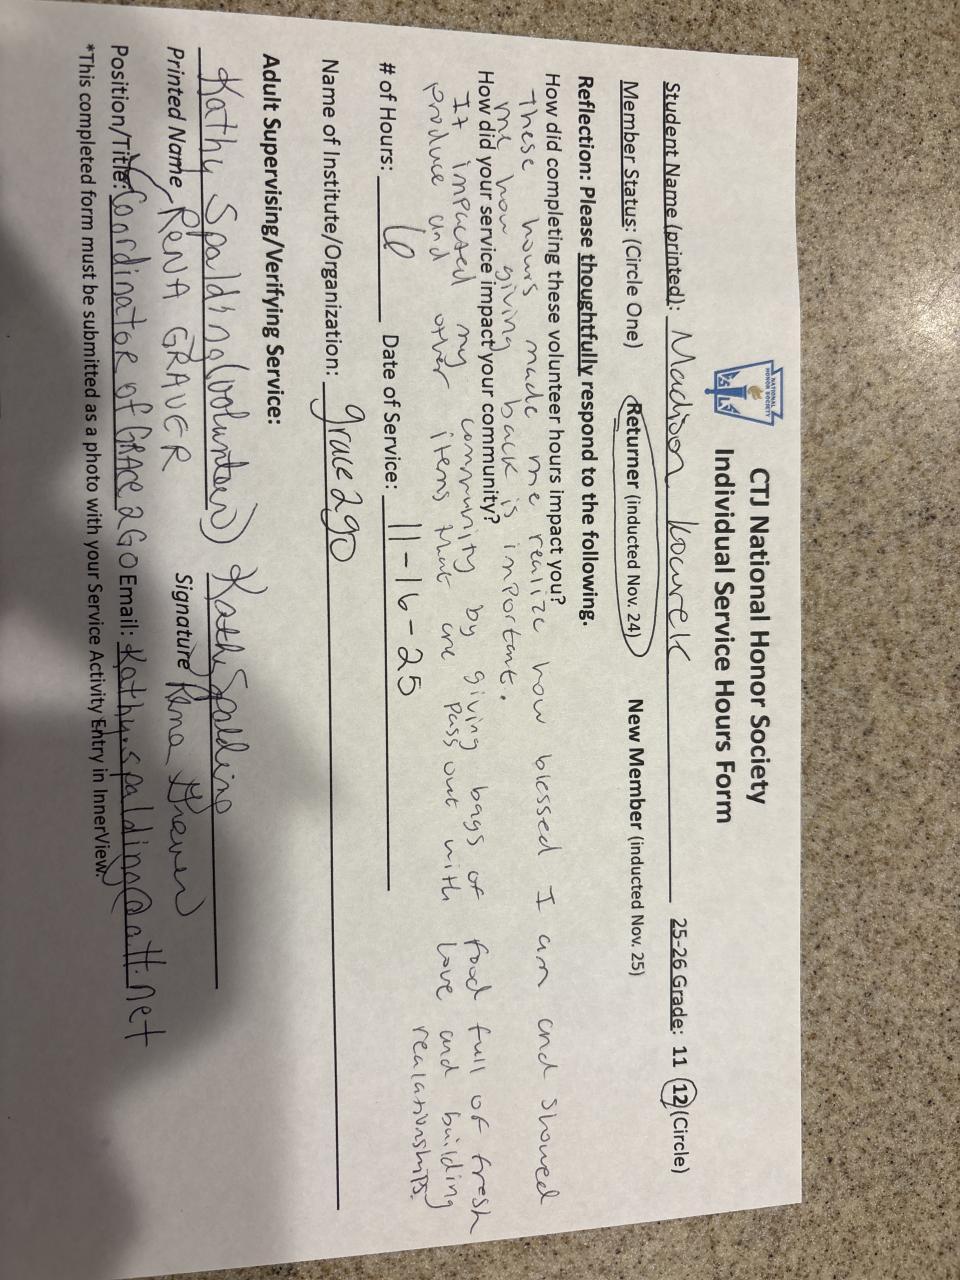 NATIONAL HONOR SOCIETY
CTJ National Honor Society
Individual Service Hours Form
Student Name (printed): Madison Kourelc 25-26 Grade: 11 12 (Circle)
Member Status: (Circle One) Returner (inducted Nov. 24) New Member (inducted Nov. 25)
Reflection: Please thoughtfully respond to the following.
How did completing these volunteer hours impact you?
These hours made me realize how blessed I am and showed
me how giving back is important.
How did your service impact your community?
It impacted my community by giving bags of food full of fresh
produce and other items that are pass out with love and building
realationships.
# of Hours: 6 Date of Service: 11-16-25
Name of Institute/Organization: grace2go
Adult Supervising/Verifying Service:
Kathy Spalding (volunteer) Kathy Spalding
Printed Name RENA GRAVER Signature Rena Graver
Position/Title: Coordinator of GRACE 2GO Email: Kathy.spalding@att.net
*This completed form must be submitted as a photo with your Service Activity Entry in InnerView.